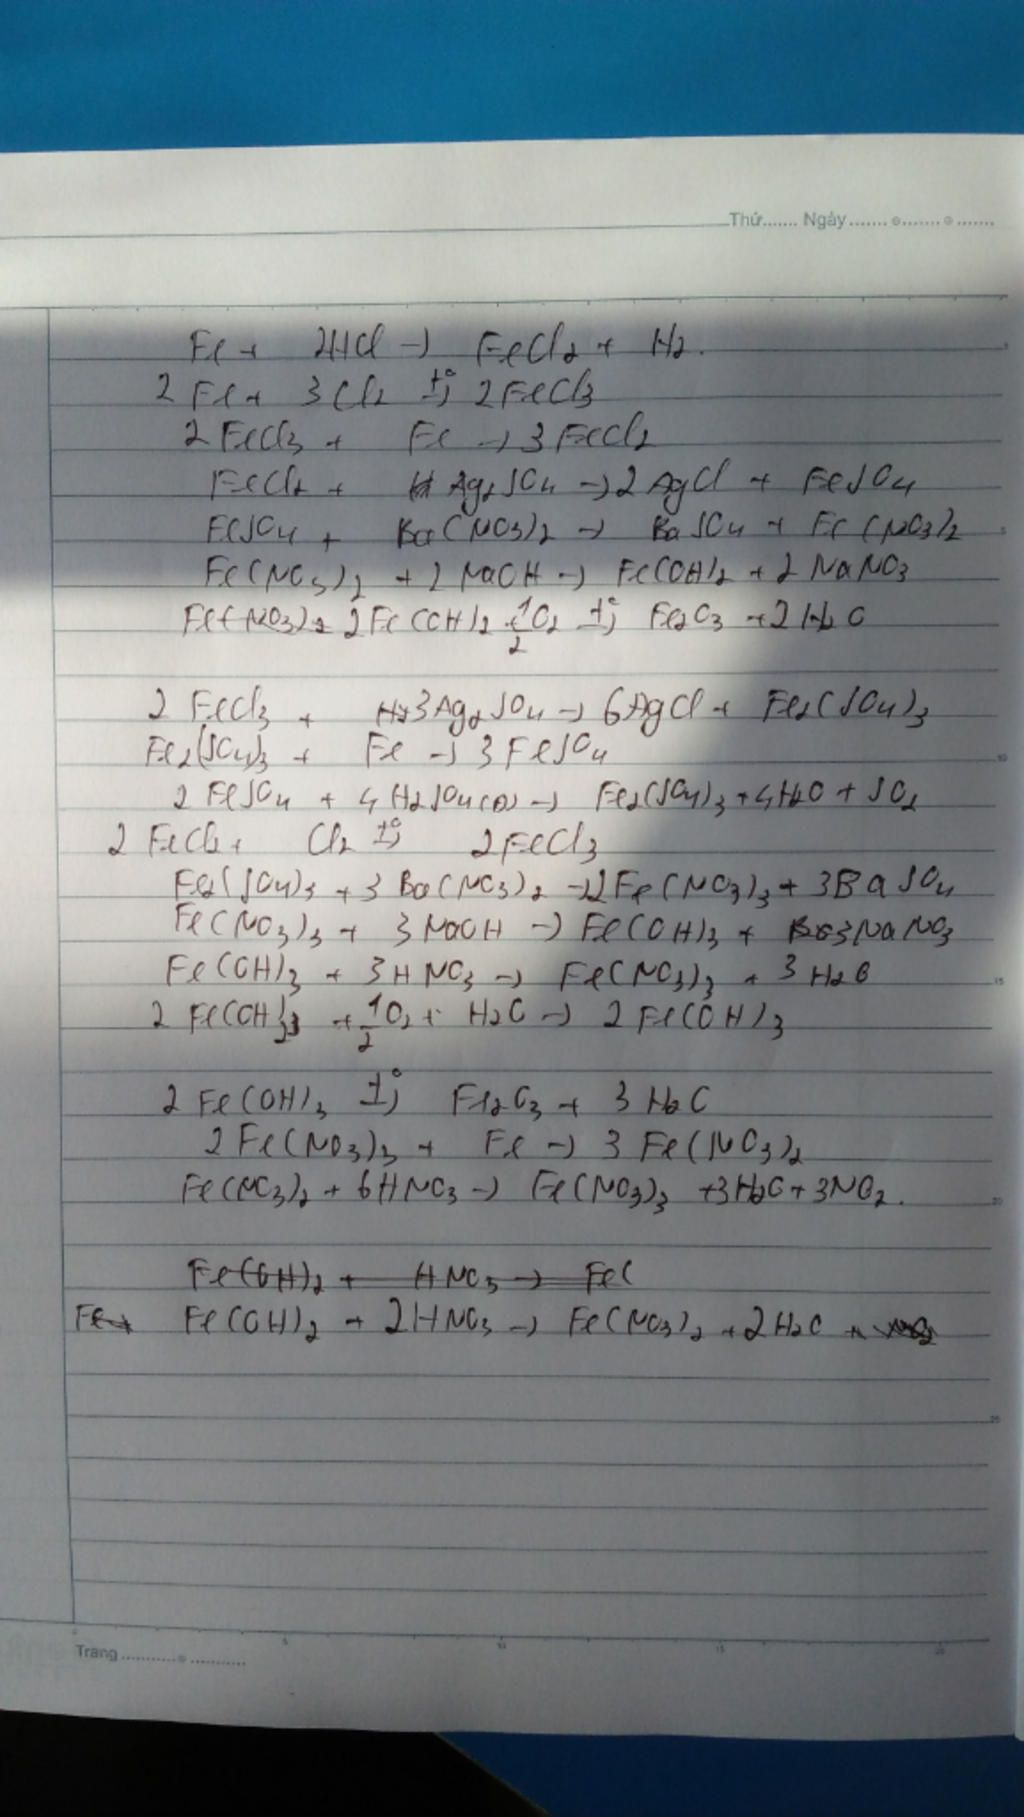 Thứ....... Ngày ....... ....... .......
Fe + 2HCl → FeCl2 + H2.
2 Fe + 3 Cl2 t°→ 2 FeCl3
2 FeCl3 + Fe → 3 FeCl2
FeCl2 + Ag2SO4 → 2 AgCl + FeSO4
FeSO4 + Ba(NO3)2 → BaSO4 + Fe(NO3)2
Fe(NO3)2 + 2 NaOH → Fe(OH)2 + 2 NaNO3
2 Fe(OH)2 + 1/2 O2 t°→ Fe2O3 + 2 H2O
2 FeCl3 + 3 Ag2SO4 → 6 AgCl + Fe2(SO4)3
Fe2(SO4)3 + Fe → 3 FeSO4
2 FeSO4 + 4 H2SO4(Đ) → Fe2(SO4)3 + 4 H2O + SO2
2 FeCl2 + Cl2 t°→ 2 FeCl3
Fe2(SO4)3 + 3 Ba(NO3)2 → 2 Fe(NO3)3 + 3 BaSO4
Fe(NO3)3 + 3 NaOH → Fe(OH)3 + 3 NaNO3
Fe(OH)3 + 3 HNO3 → Fe(NO3)3 + 3 H2O
2 Fe(OH) + 1/2 O2 + H2O → 2 Fe(OH)3
2 Fe(OH)3 t°→ Fe2O3 + 3 H2O
2 Fe(NO3)3 + Fe → 3 Fe(NO3)2
Fe(NO3)2 + 6 HNO3 → Fe(NO3)3 + 3 H2O + 3 NO2.
Fe(OH)2 + HNO3 → Fe(
Fe(OH)2 + 2 HNO3 → Fe(NO3)2 + 2 H2O +
Trang ....................